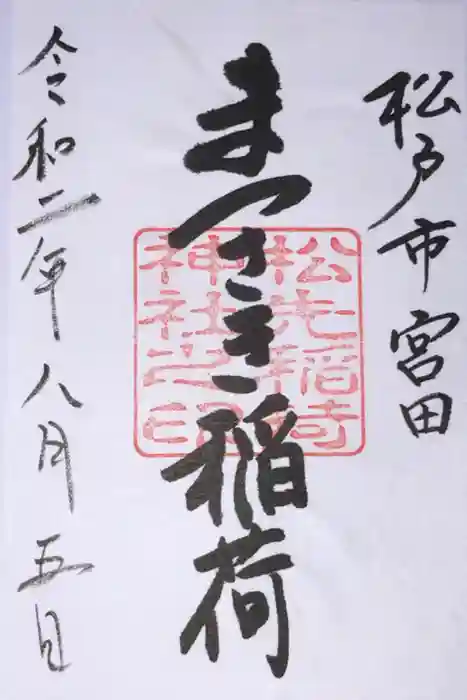 松戸市宮田
まつさき稲荷
松先稲荷
神社之印
令和二年八月五日